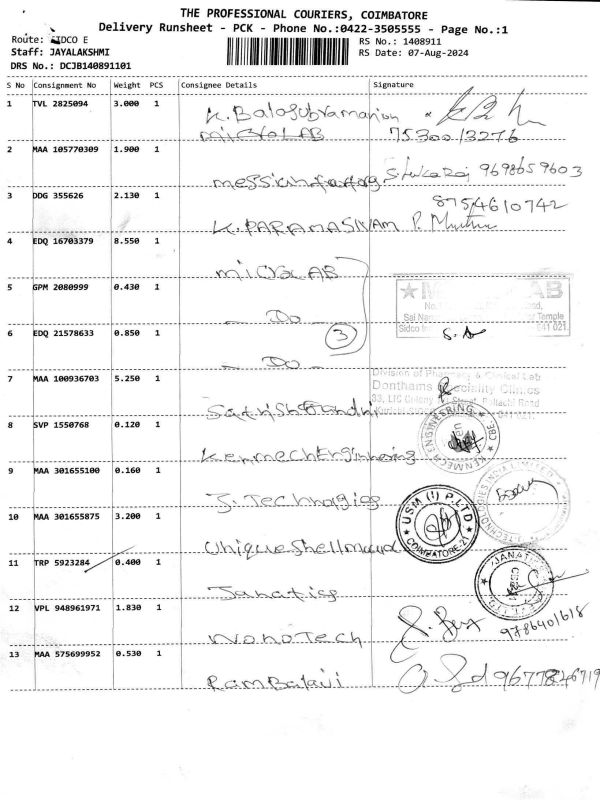 THE PROFESSIONAL COURIERS, COIMBATORE
Delivery Runsheet - PCK - Phone No.:0422-3505555 - Page No.:1
Route: SIDCO E
Staff: JAYALAKSHMI
DRS No.: DCJB140891101
RS No.: 1408911
RS Date: 07-Aug-2024
S No Consignment No Weight PCS Consignee Details Signature
1 TVL 2825094 3.000 1 K. Balasubramanian
microLAB 75300 13276
2 MAA 105770309 1.900 1
9698659603
3 DDG 355626 2.130 1 8754610742
K. PARAMASIVAM
4 EDQ 16703379 8.550 1
microLAB
5 GPM 2080999 0.430 1
- Do -
6 EDQ 21578633 0.850 1
3
- Do -
7 MAA 100936703 5.250 1
Division of Pharmacy & Clinical Lab
Donthams Speciality Clinics
33, LIC Colony
Satish Gandhi
8 SVP 1550768 0.120 1
KENMECH ENGINEERING CBE
Kenmech Engineering
9 MAA 301655100 0.160 1
J. Technogies
10 MAA 301655875 3.200 1
USM (I) P.LTD
COIMBATORE-21
Unique Shell
11 TRP 5923284 0.400 1
JANATICS
Janatics
12 VPL 948961971 1.830 1
9786401618
NonoTech
13 MAA 575699952 0.530 1
9677846719
Ram Balaji